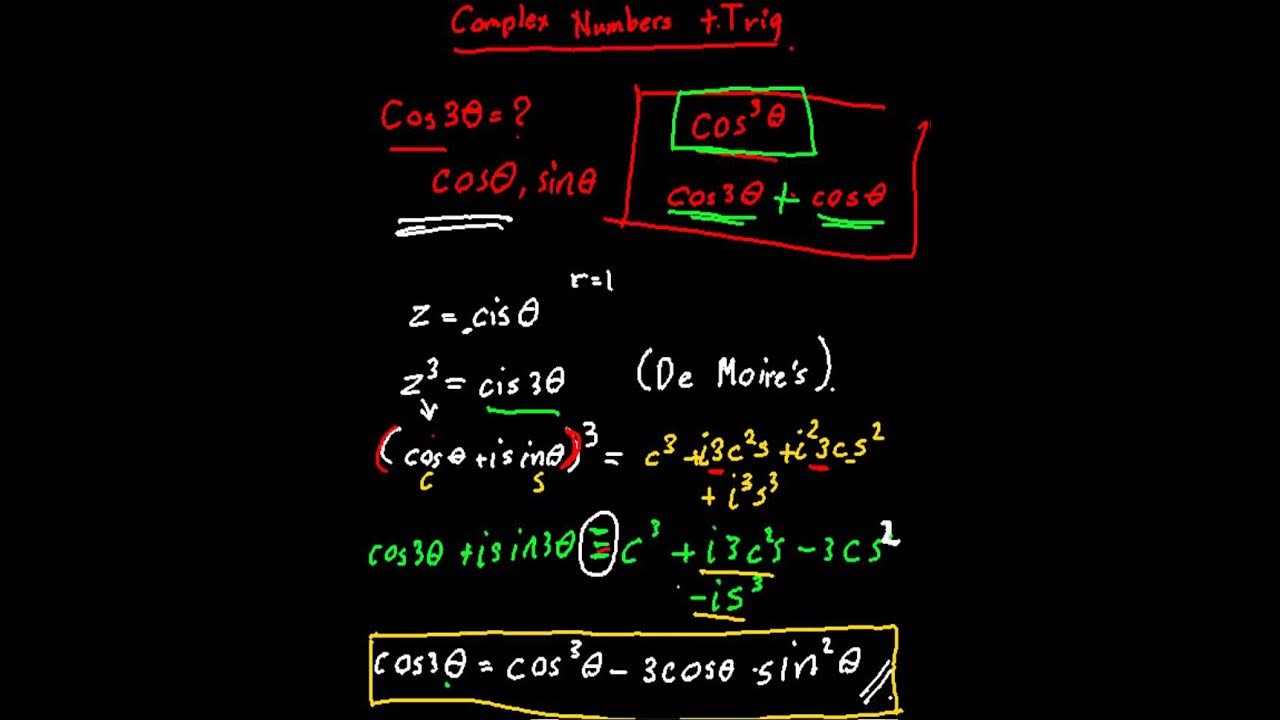 Complex Numbers + Trig.
Cos3θ = ?
cosθ, sinθ
cos³θ
cos3θ + cosθ
r=1
z = cisθ
z³ = cis3θ (De Moire's).
(cosθ + isinθ)³ = c³ + i3c²s + i²3cs²
c s
+ i³s³
cos3θ + isin3θ ≡ c³ + i3c²s - 3cs²
- is³
cos3θ = cos³θ - 3cosθ · sin²θ //